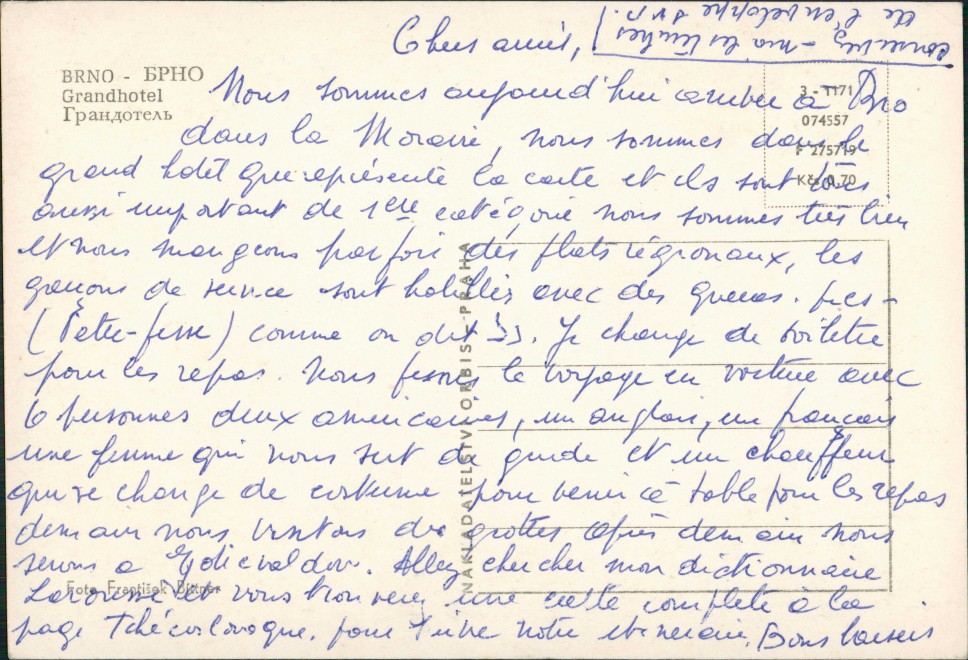 conservez-moi les timbres
de l'enveloppe svp.
Chers amis,
BRNO - БРНО
Grandhotel
Грандотель
3 - 1171
074557
F 275719
Kčs 0,70
Nous sommes aujourd'hui arrivée à Brno
dans la Moravie, nous sommes dans le
grand hotel que représente la carte et ils sont tous
aussi important de 1ere catégorie nous sommes très bien
et nous mangeons parfois des plats régionaux, les
garçons de service sont habillés avec des queues. pies-
(Pette-fesse) comme on dit . Je change de toilette
pour les repas. Nous fesons le voyage en voiture avec
6 personnes deux américaines, un anglais, un français
une femme qui nous sert de guide et un chauffeur
qui se change de costume pour venir à table pour les repas
demain nous visitons des grottes après demain nous
serons a . Allez chercher mon dictionnaire
Larousse et vous trouverez une carte complete à la
page Tchécoslovaque, pour suivre notre itineraire. Bons baisers
Foto František Bittner
NAKLADATELSTVÍ ORBIS - PRAHA